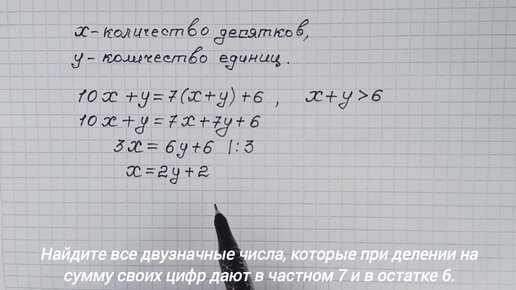 x - количество десятков,
y - количество единиц.
10x + y = 7(x+y) + 6 , x+y > 6
10x + y = 7x + 7y + 6
3x = 6y + 6 |: 3
x = 2y + 2
Найдите все двузначные числа, которые при делении на
сумму своих цифр дают в частном 7 и в остатке 6.